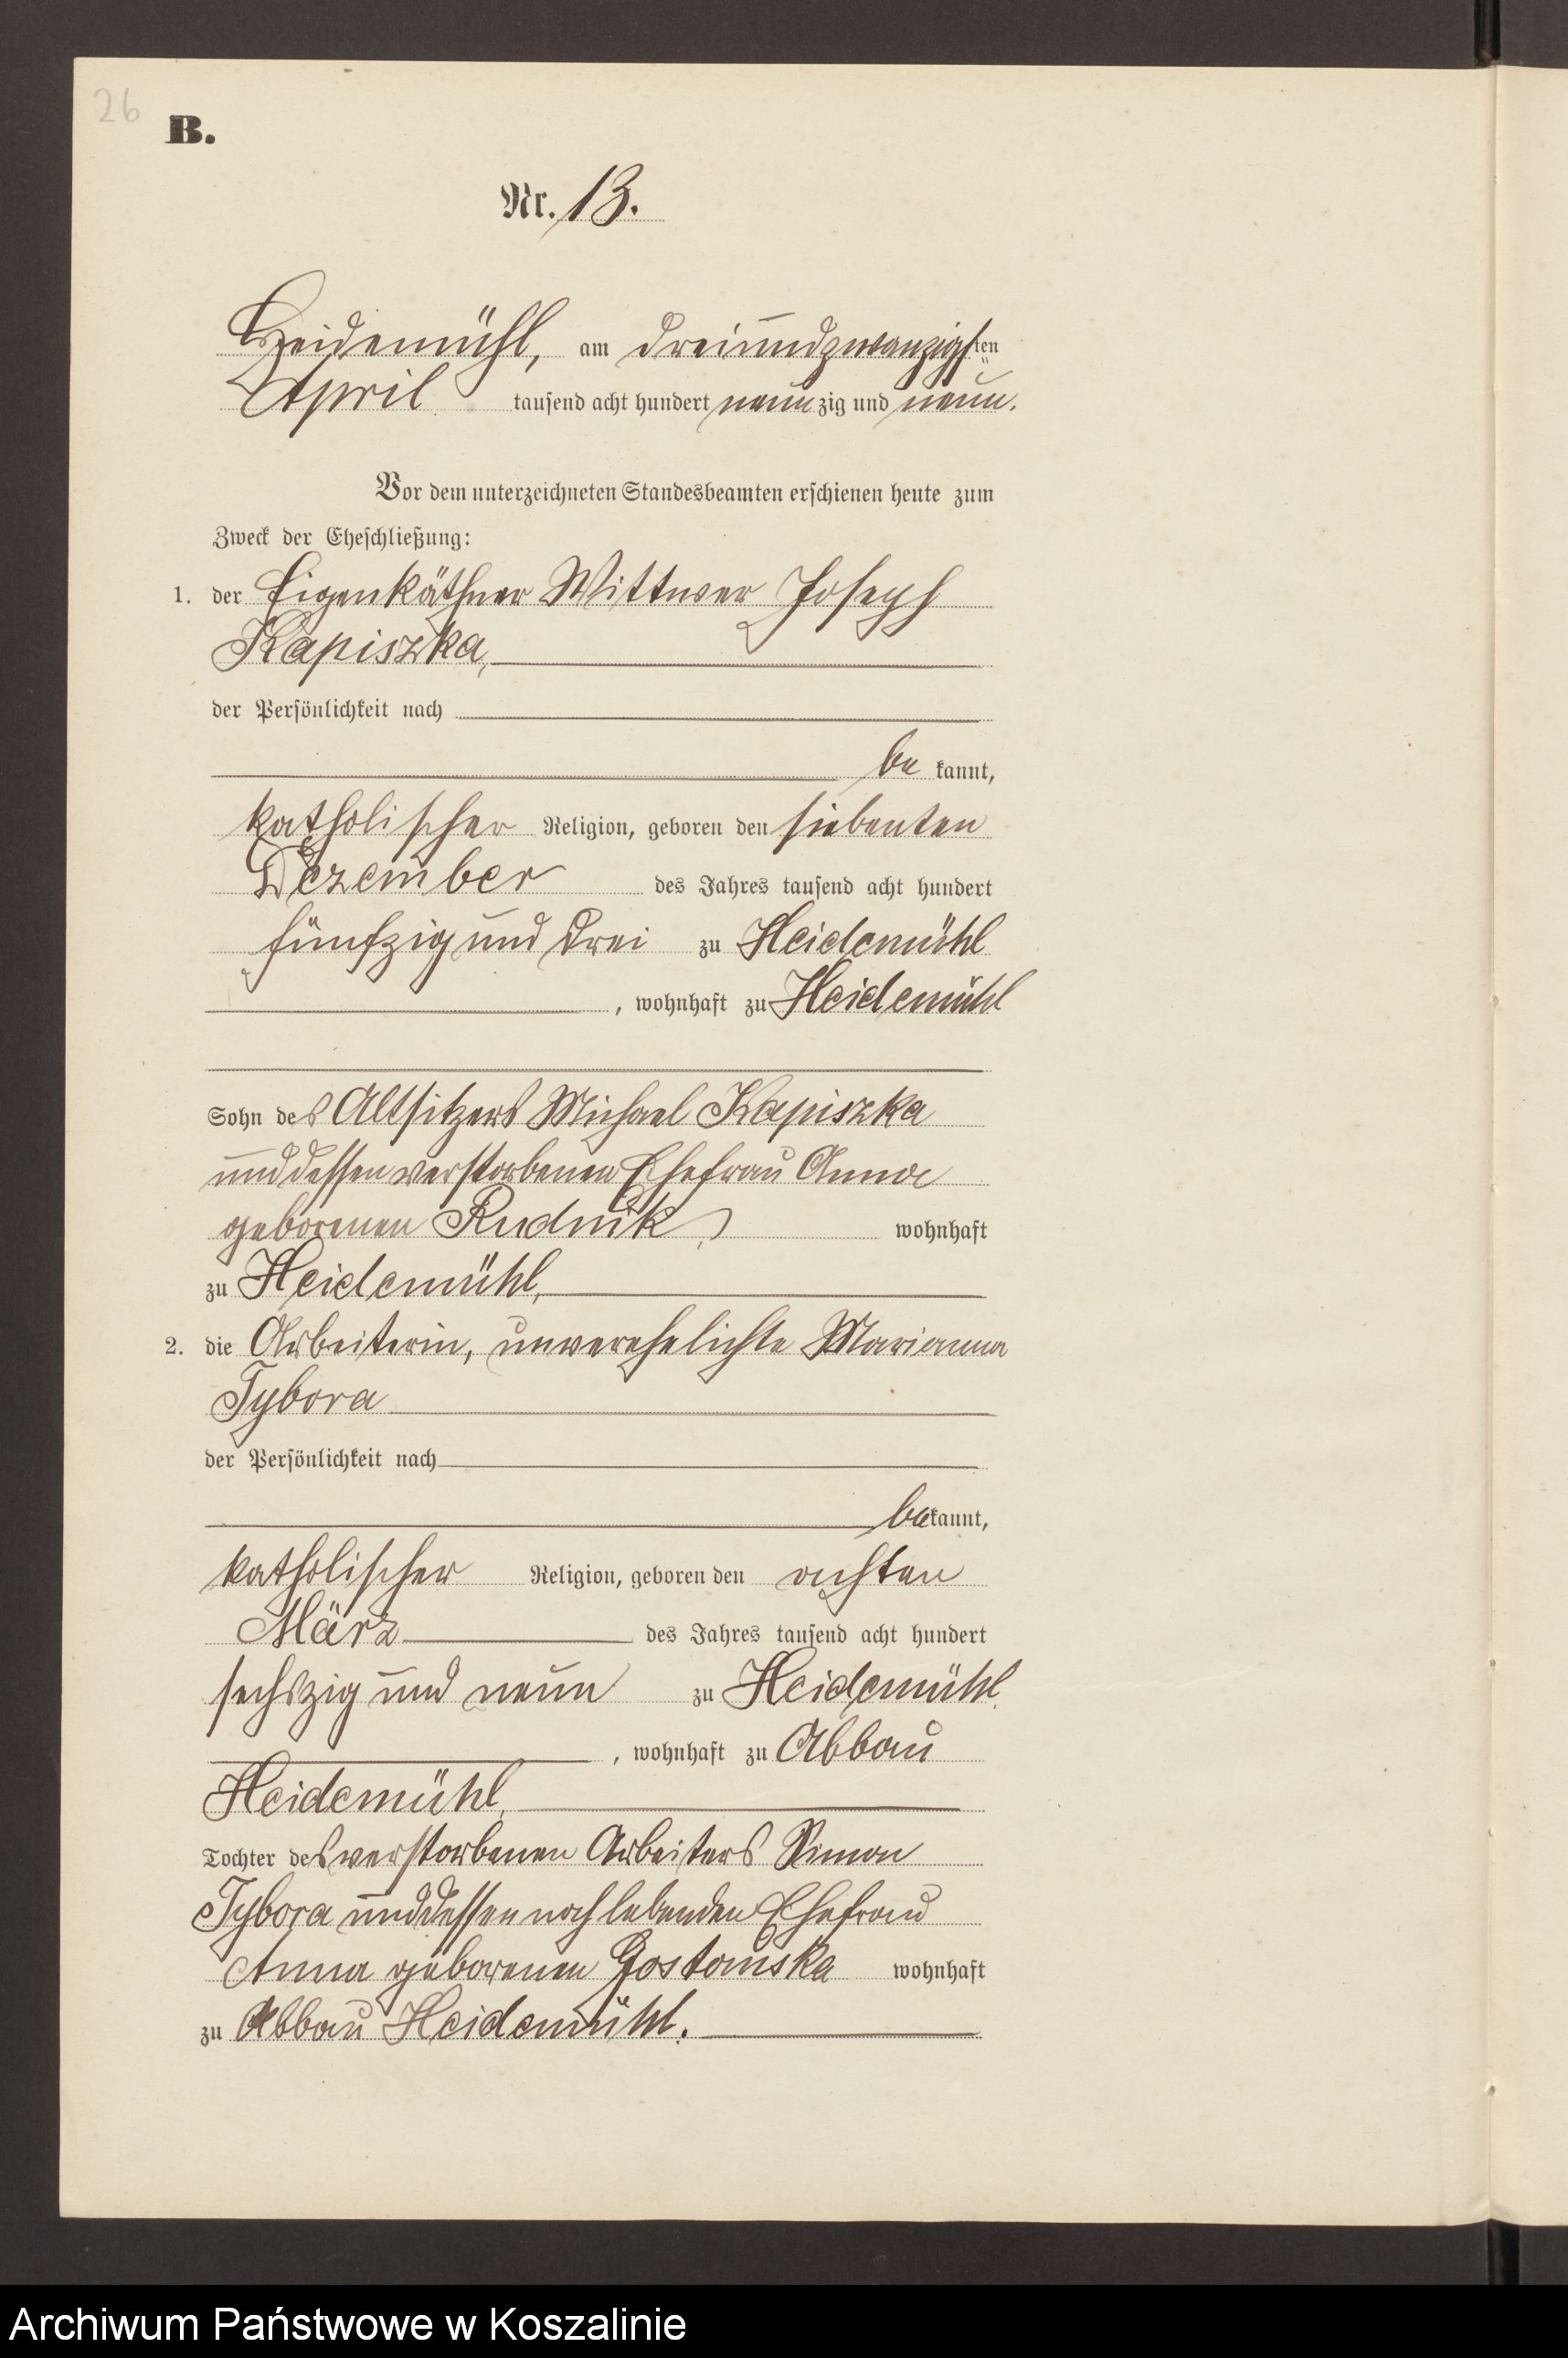 26
B.
Nr. 13.
Heidemühl, am dreiundzwanzigsten
April tausend acht hundert neunzig und neun.
Vor dem unterzeichneten Standesbeamten erschienen heute zum
Zweck der Eheschließung:
1. der Eigenkäthner Wittwer Joseph
Kapiszka,
der Persönlichkeit nach
be kannt,
katholischer Religion, geboren den siebenten
Dezember des Jahres tausend acht hundert
fünfzig und drei zu Heidemühl
, wohnhaft zu Heidemühl
Sohn des Altsitzers Michael Kapiszka
und dessen verstorbenen Ehefrau Anna
geborenen Rudnik, wohnhaft
zu Heidemühl,
2. die Arbeiterin, unverehelichte Marianna
Tybora
der Persönlichkeit nach
bekannt,
katholischer Religion, geboren den achten
März des Jahres tausend acht hundert
sechszig und neun zu Heidemühl
, wohnhaft zu Abbau
Heidemühl,
Tochter des verstorbenen Arbeiters Simon
Tybora und dessen noch lebenden Ehefrau
Anna geborenen Gostomska wohnhaft
zu Abbau Heidemühl.
Archiwum Państwowe w Koszalinie